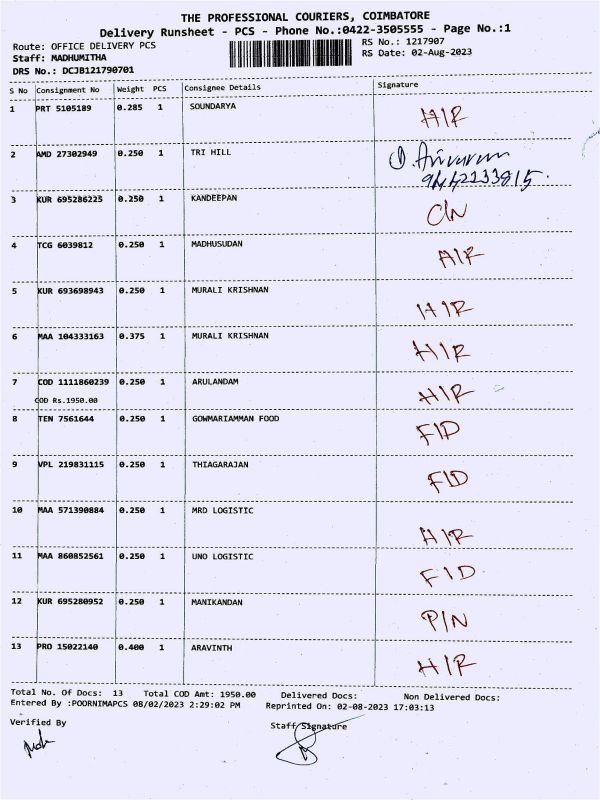 THE PROFESSIONAL COURIERS, COIMBATORE
Delivery Runsheet - PCS - Phone No.:0422-3505555 - Page No.:1
Route: OFFICE DELIVERY PCS
RS No.: 1217907
Staff: MADHUMITHA
RS Date: 02-Aug-2023
DRS No.: DCJB121790701
S No Consignment No Weight PCS Consignee Details Signature
1 PRT 5105189 0.285 1 SOUNDARYA HIR
2 AMD 27302949 0.250 1 TRI HILL
3 KUR 695286225 0.250 1 KANDEEPAN C/N
4 TCG 6039812 0.250 1 MADHUSUDAN HIR
5 KUR 693698943 0.250 1 MURALI KRISHNAN HIR
6 MAA 104333163 0.375 1 MURALI KRISHNAN HIR
7 COD 1111860239 0.250 1 ARULANDAM HIR
COD Rs.1950.00
8 TEN 7561644 0.250 1 GOWMARIAMMAN FOOD FID
9 VPL 219831115 0.250 1 THIAGARAJAN FID
10 MAA 571390884 0.250 1 MRD LOGISTIC HIR
11 MAA 860852561 0.250 1 UNO LOGISTIC FID
12 KUR 695280952 0.250 1 MANIKANDAN P/N
13 PRO 15022140 0.400 1 ARAVINTH HIR
Total No. Of Docs: 13 Total COD Amt: 1950.00 Delivered Docs: Non Delivered Docs:
Entered By :POORNIMAPCS 08/02/2023 2:29:02 PM Reprinted On: 02-08-2023 17:03:13
Verified By
Staff Signature